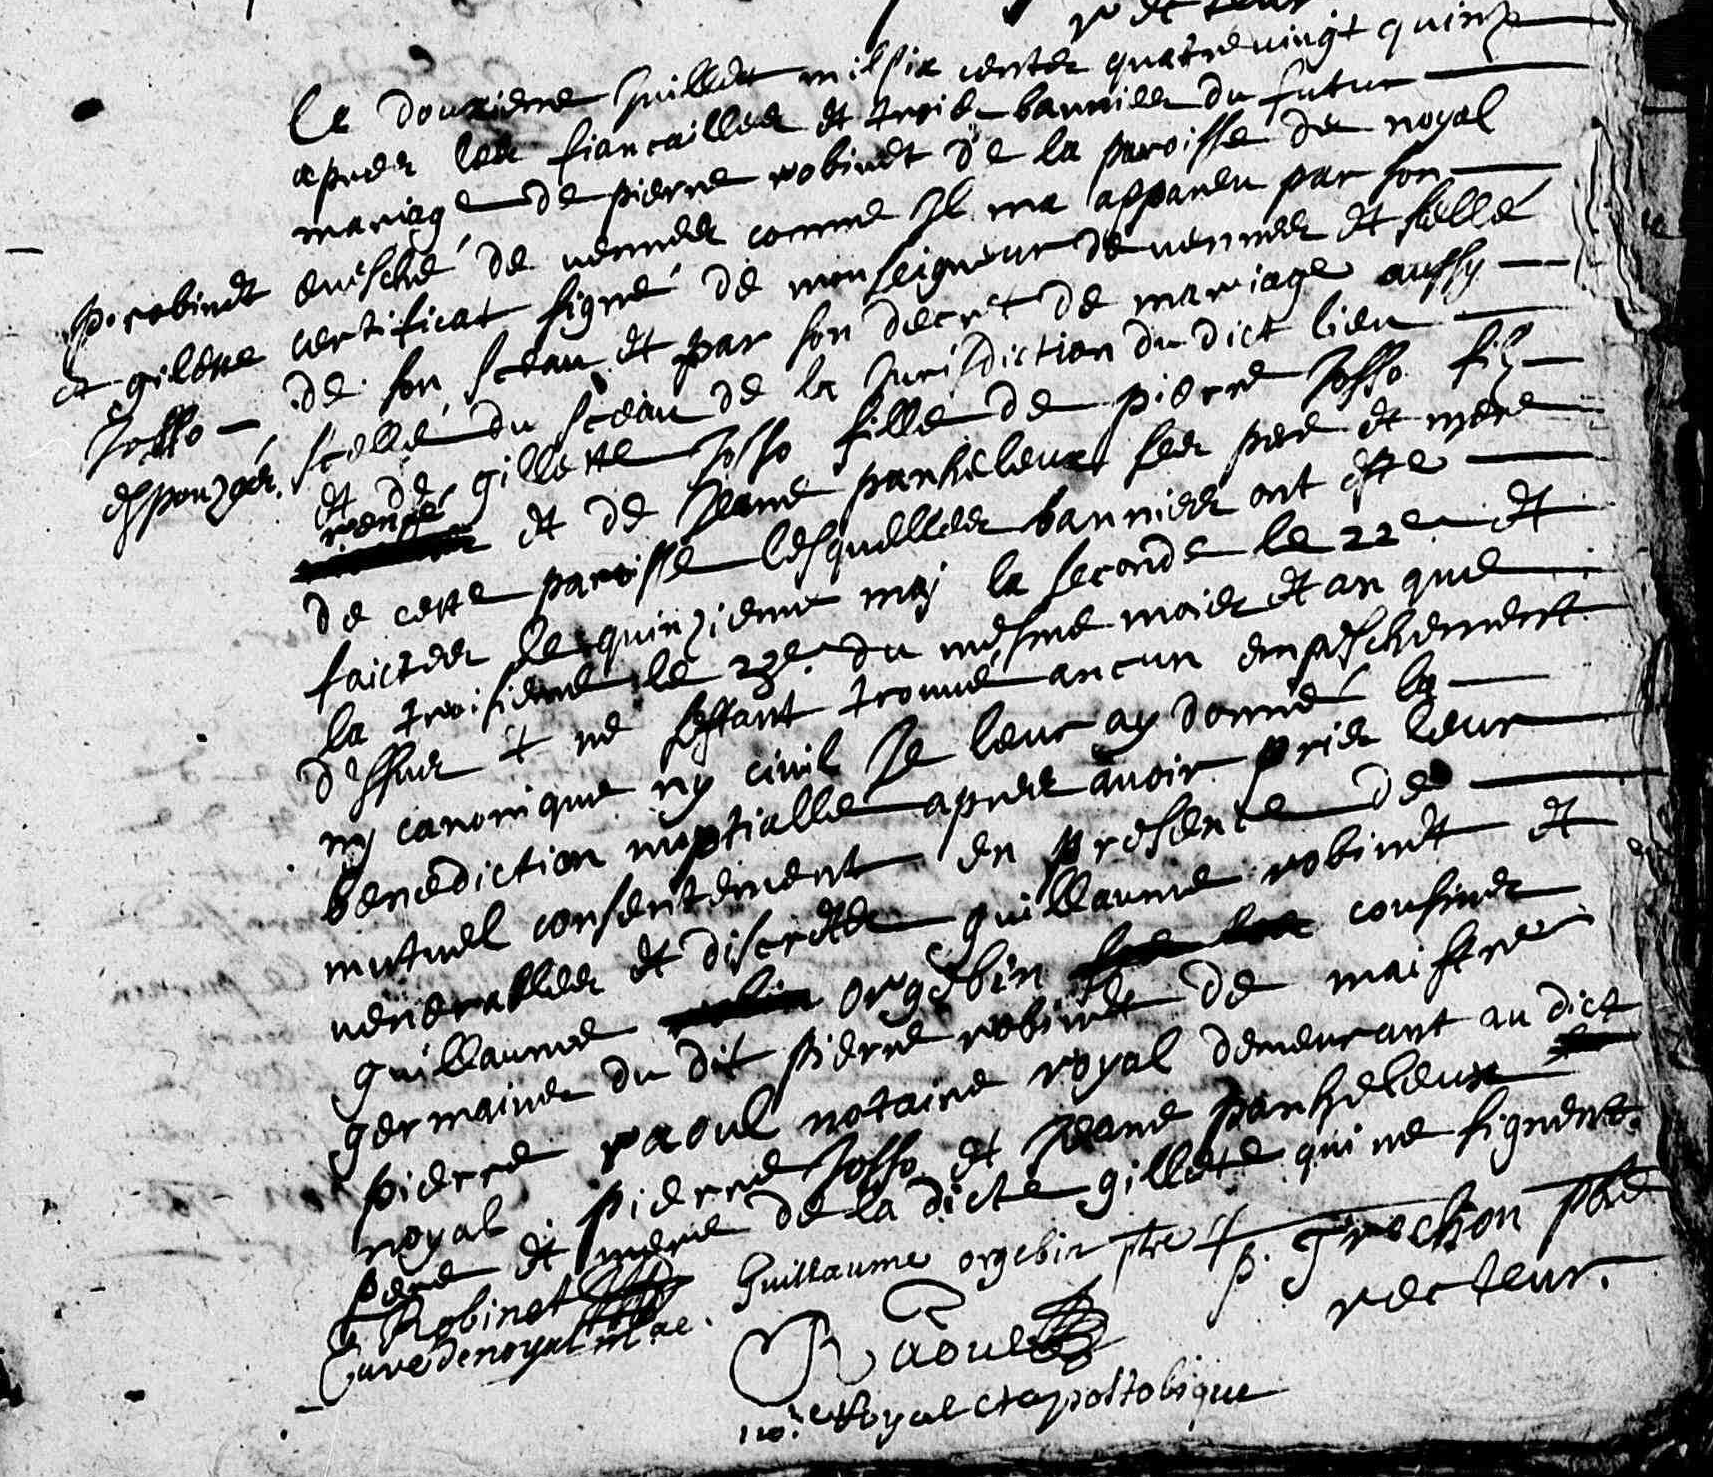 recteur
Le douxieme Juillet mil six centes quatre vingt quinze
apres les fiancailles et trois bannies du futur
mariage de pierre robinet de la paroisse de noyal
evesché de vennes comme Il ma apparu par son
certificat signé de monseigneur de vennes et sellé
de son sceau et par son decret de mariage aussy
scellé du sceau de la Jurisdiction du dict lieu
et de gillette Josso fille de pierre Josso fils
et de Jeanne panheleux ses pere et mere
de cette paroisse lesquelles bannies ont este
faictes le quinzieme may la seconde le 22e et
la troisieme le 23e du mesme mois et an que
dessus & ne sestant trouvé aucun empeschement
ny canonique ny civil Je leur ay donné la
benediction nuptialle apres avoir pris leur
mutuel consentement en presence de
venerables et discrettes guillaume robinet et
guillaume orgebin cousines
germaines du dit pierre robinet de maistre
pierre raoul notaire royal demeurant au dict
noyal pierre Josso et Jeanne panheleux
pere et mere de la dicte gillete qui ne signent
P. robinet
et gilette
Josso
espouzés.
Robinet
Curé de noyal
Guillaume orgebin ptre
p. Trochon ptre
recteur.
Raoul
no.re Royal et apostolique